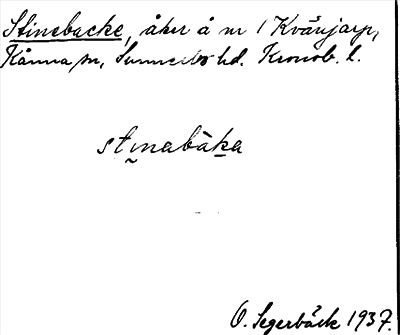 Stinebacke, åker å nr 1 Kvänjarp,
Kånna sn, Sunnerbo hd. Kronob. l.
stınabàka
O. Segerbäck 1937.